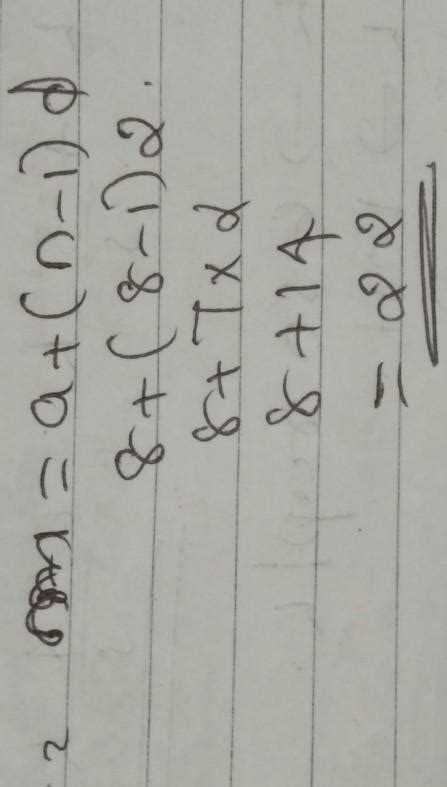 2 an = a+(n-1)d
8+(8-1)2.
8+7x2
8+14
=22